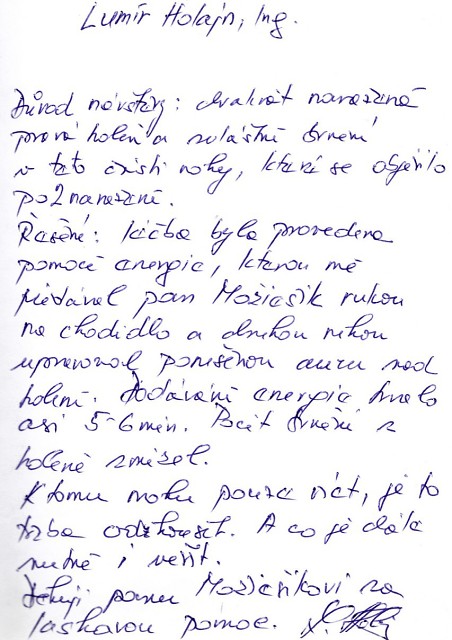 Lumír Holajn, Ing.
Důvod návštěvy: dvakrát naražená
pravá holeň a zvláštní brnění
v této části nohy, které se objevilo
po 2 naražení.
Řešení: léčba byla provedena
pomocí energie, kterou mě
předával pan Možiešik rukou
na chodidlo a druhou rukou
upravoval porušenou auru nad
holení. Dodávání energie trvalo
asi 5-6 min. Pocit brnění z
holeně zmizel.
K tomu mohu pouze říct, je to
třeba odzkoušet. A co je dále
nutné i věřit.
Děkuji panu Možiešikovi za
laskavou pomoc.